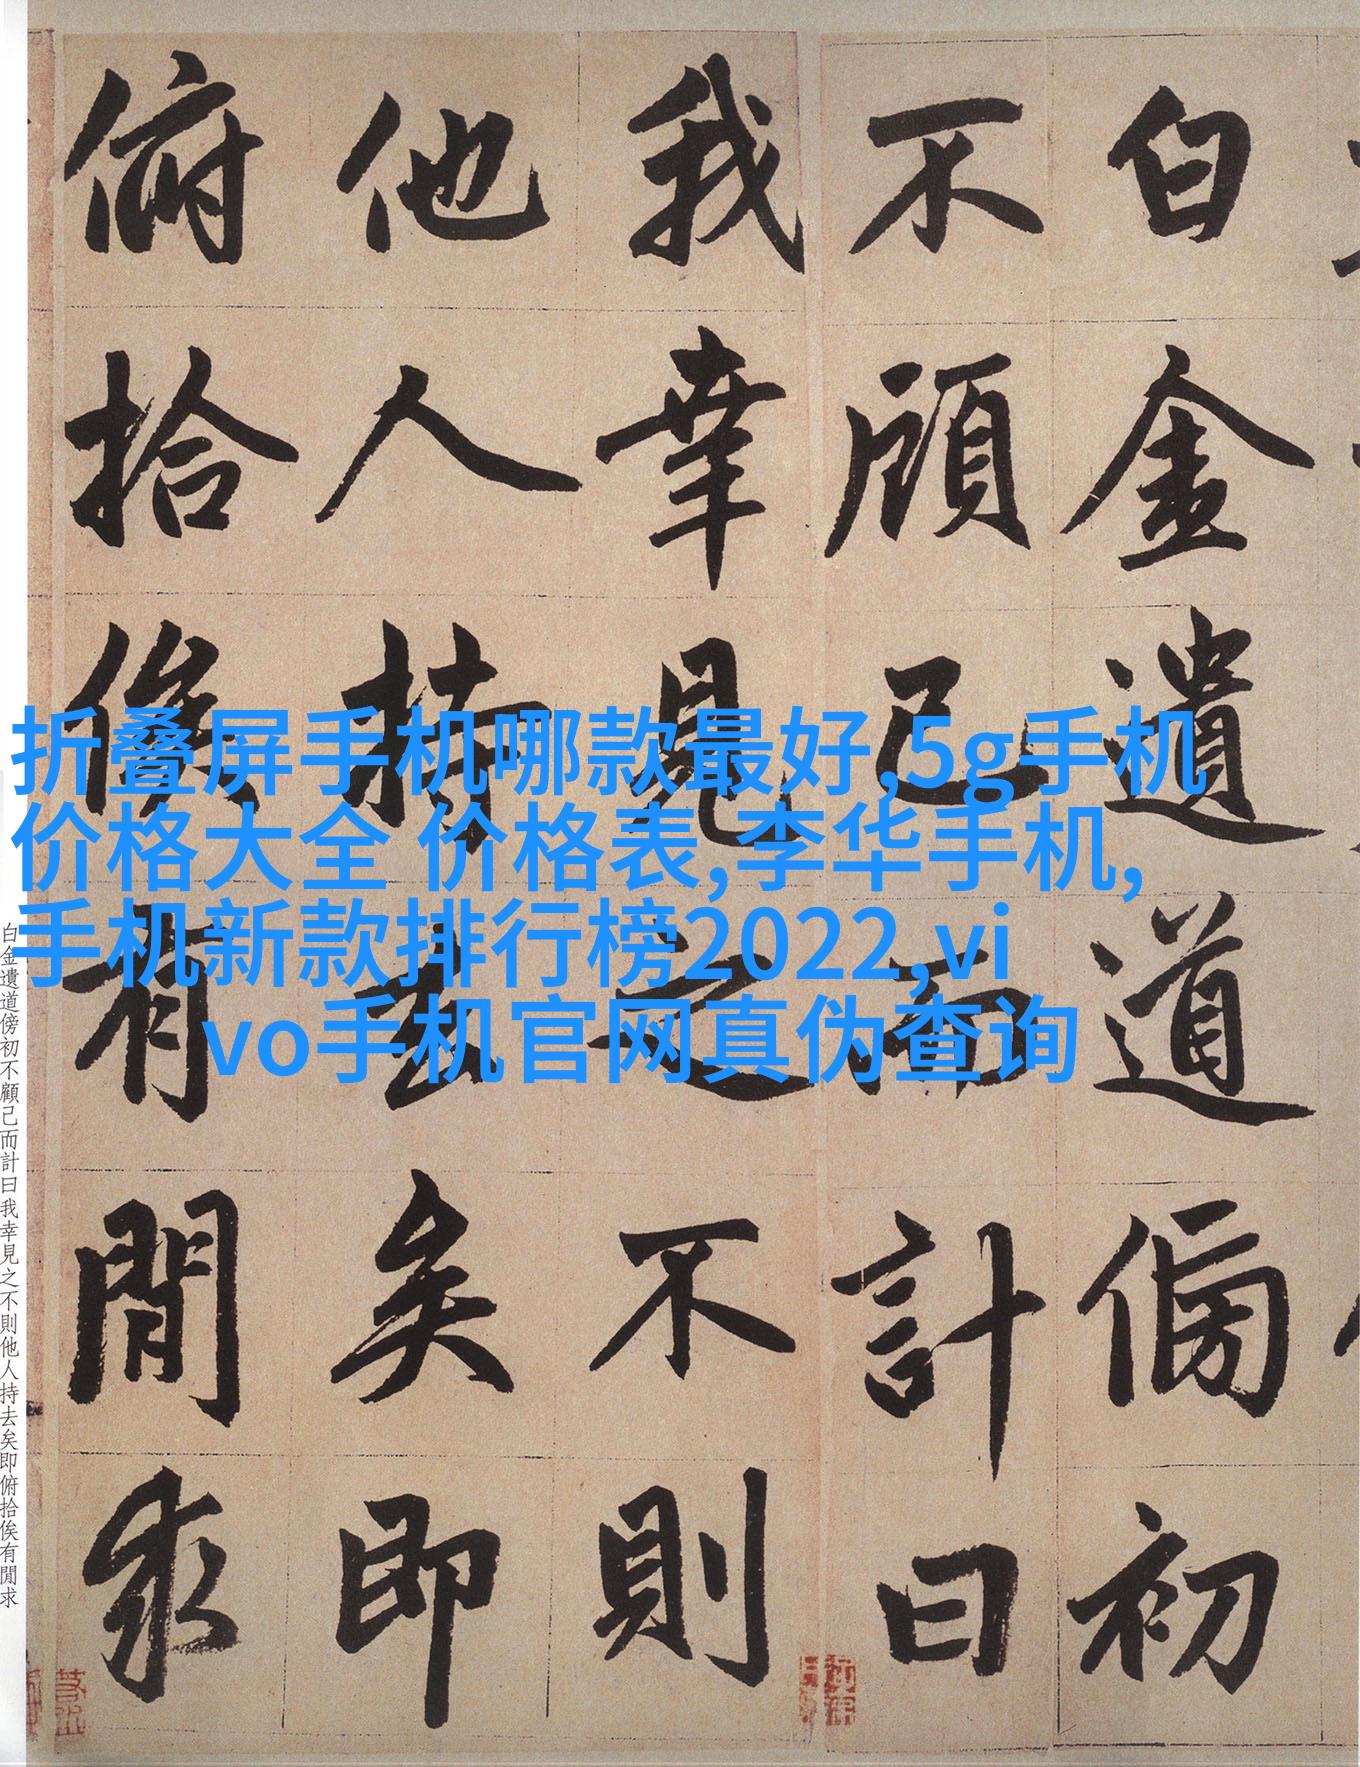 白金遺道傍初
不顧己而計曰
我幸見之不則
他人持去矣即
俯拾俟有閒求
折叠屏手机哪款最好,5g手机
价格大全 价格表,李华手机,
手机新款排行榜2022,vi
vo手机官网真伪查询
白金遺道傍初不顧己而計曰我幸見之不則他人持去矣即俯拾俟有閒求